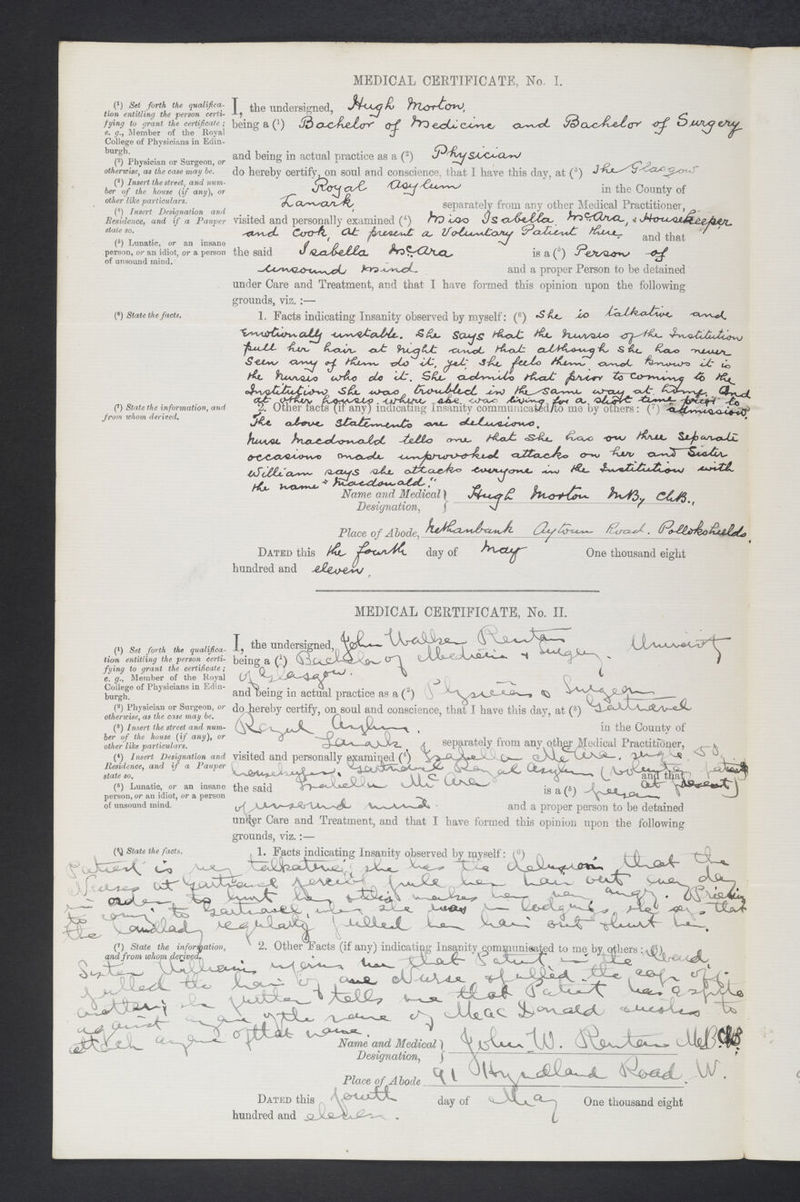 MEDICAL CERTIFICATE, No. I.
(¹) Set forth the qualifica-
tion entitling the person certi-
fying to grant the certificate;
e. g., Member of the Royal
College of Physicians in Edin-
burgh.
(²) Physician or Surgeon, or
otherwise, as the case may be.
(³) Insert the street, and num-
ber of the house (if any), or
other like particulars.
(⁴) Insert Designation and
Residence, and if a Pauper
state so.
(⁵) Lunatic, or an insane
person, or an idiot, or a person
of unsound mind.
I, the undersigned, Hugh Morton,
being a (¹) Bachelor of Medicine and Bachelor of Surgery
and being in actual practice as a (²) Physician
do hereby certify, on soul and conscience, that I have this day, at (³) The Glasgow
Royal Asylum in the County of
Lanark, separately from any other Medical Practitioner,
visited and personally examined (⁴) Miss Isabella McAra, Housekeeper
and Cook, at present a Voluntary Patient there and that
the said Isabella McAra is a (⁵) Person of
unsound mind and a proper Person to be detained
under Care and Treatment, and that I have formed this opinion upon the following
grounds, viz. :—
(⁶) State the facts.
1. Facts indicating Insanity observed by myself: (⁶) She is talkative and
emotionally unstable. She says that the nurses of the Institution
pull her hair at night and that although she has never
seen any of them do it, yet she feels them and knows it is
the nurses who do it. She admits that prior to coming to the
Institution she was troubled in the same way at home, and
at other houses where she was living for a short time prior to
admission.
(⁷) State the information, and
from whom derived.
2. Other facts (if any) indicating Insanity communicated to me by others: (⁷)
The above statements are delusions.
Nurse Macdonald tells me that she has on three separate
occasions made unprovoked attacks on her and Sister
William says she attacks everyone in the Institution with
the name "Macdonald."
Name and Medical Designation, Hugh Morton M.B, Ch.B.,
Place of Abode, Nethanbank Aytoun Road. Pollokshields.
DATED this the fourth day of May One thousand eight
hundred and eleven.
MEDICAL CERTIFICATE, No. II.
(¹) Set forth the qualifica-
tion entitling the person certi-
fying to grant the certificate;
e. g., Member of the Royal
College of Physicians in Edin-
burgh.
(²) Physician or Surgeon, or
otherwise, as the case may be.
(³) Insert the street and num-
ber of the house (if any), or
other like particulars.
(⁴) Insert Designation and
Residence, and if a Pauper
state so.
(⁵) Lunatic, or an insane
person, or an idiot, or a person
of unsound mind.
I, the undersigned, John Walker Renton
being a (¹) Bachelor of Medicine & Surgery. University
of Glasgow.
and being in actual practice as a (²) Physician & Surgeon
do hereby certify, on soul and conscience, that I have this day, at (³) Gartnavel
Royal Asylum. in the County of
Lanark separately from any other Medical Practitioner,
visited and personally examined (⁴) Isabella McAra. single 50
housekeeper. Gartnavel Royal Asylum (voluntary patient
at present) and that
the said Isabella McAra is a (⁵) person
of unsound mind. and a proper person to be detained
under Care and Treatment, and that I have formed this opinion upon the following
grounds, viz. :—
(⁶) State the facts.
1. Facts indicating Insanity observed by myself: (⁶)
Patient is very talkative; she has the delusion that the
Nurses at Gartnavel forcibly pull her hair out every day
in order to hurt her & this makes her very angry. Prior
to coming to Gartnavel, when she was in lodgings, she says that
the landlady regularly pulled her hair out & hurt her.
(⁷) State the information,
and from whom derived.
2. Other Facts (if any) indicating Insanity communicated to me by others: (⁷)
Sister Williams informs me that Patient in the Ward,
pulled the hair of one Nurse & pulled the cap off
another; she further tells me that Patient has a spite
against anyone of the name of MacDonald & wishes to
attack anyone of that name.
Name and Medical Designation, John W. Renton M.B. Ch.B.
Place of Abode 91 Hyndland Road. W.
DATED this fourth day of May One thousand eight
hundred and eleven.